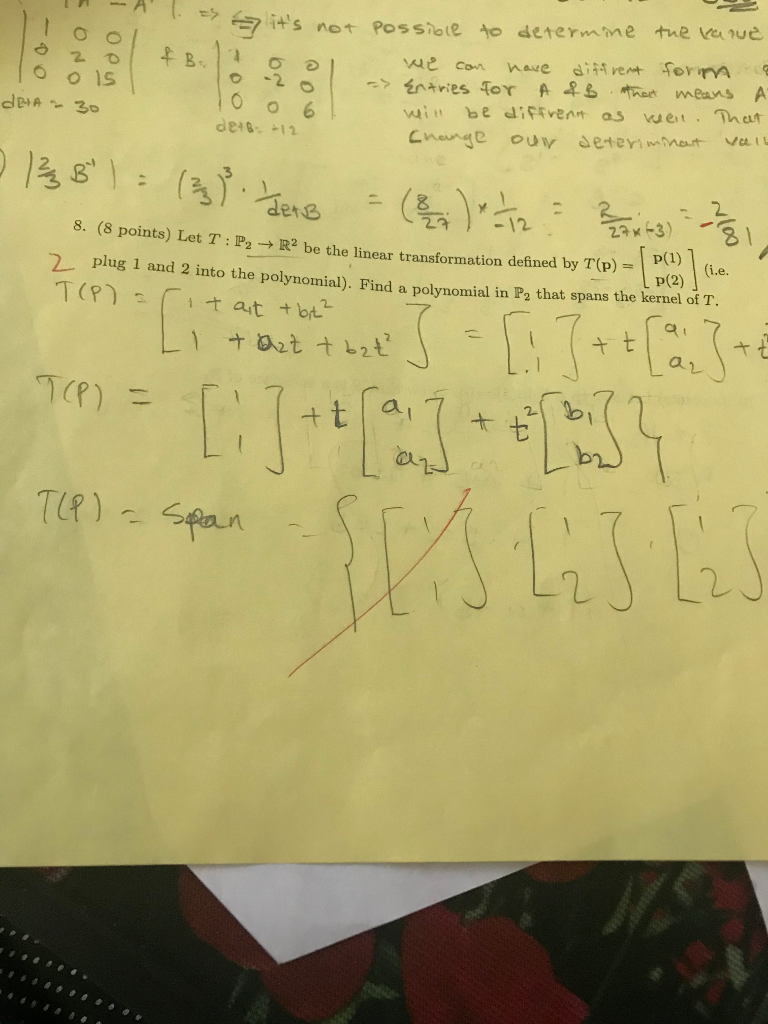 |A - A
=> it's not possible to determine the value
| 1 0 0 |
| 0 2 0 |
| 0 0 15 |
det A = 30
& B =
| 1 0 0 |
| 0 -2 0 |
| 0 0 6 |
det B = -12
we can have diffrent form
=> Entries for A & B. that means A
will be diffrent as well. That
change our deteriminat valu
) |2/3 B⁻¹| = (2/3)³ · 1/detB = (8/27) × 1/-12 = 2/27×(-3) = -2/81
8. (8 points) Let T : ℙ₂ → ℝ² be the linear transformation defined by T(p) = [p(1) p(2)] (i.e.
2
plug 1 and 2 into the polynomial). Find a polynomial in ℙ₂ that spans the kernel of T.
T(P) = [1 + a₁t + b₁t² 1 + a₂t + b₂t²] = [1 1] + t[a₁ a₂] + t
T(P) = [1 1] + t[a₁ a₂] + t²[b₁ b₂]}
T(P) = Span = {[1 1] . [1 2] . [1 2]